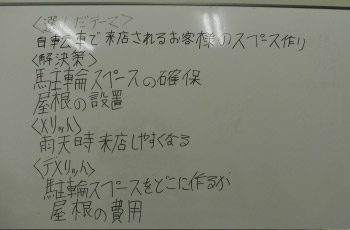 〈選んだテーマ〉
自転車で来店されるお客様のスペース作り
〈解決策〉
駐輪スペースの確保
屋根の設置
〈メリット〉
雨天時来店しやすくなる
〈デメリット〉
駐輪スペースをどこに作るか
屋根の費用